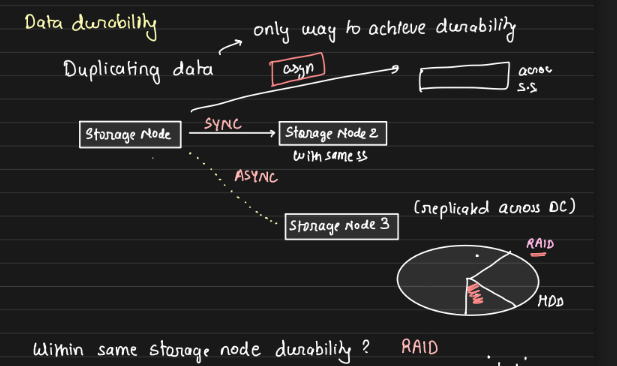 Data durability
only way to achieve durability
Duplicating data
asyn
across
s.s
Storage Node
SYNC
Storage Node 2
with same ss
ASYNC
Storage Node 3
(replicated across DC)
RAID
HDD
Within same storage node durability ? RAID